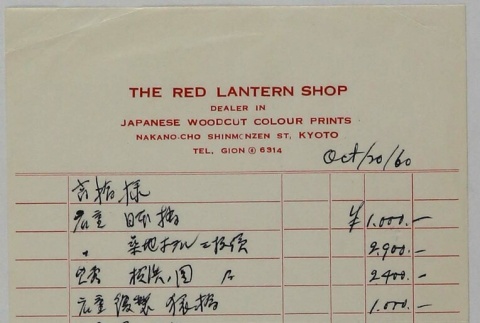 THE RED LANTERN SHOP
DEALER IN
JAPANESE WOODCUT COLOUR PRINTS
NAKANO-CHO SHINMONZEN ST, KYOTO
TEL, GION ⑥ 6314
Oct/20/60
様
広重 日本橋 ¥1.000.—
〃 築地ホテル 三枚續 2,900.—
横浜 図 2400.—
広重 猿橋 1.000.—